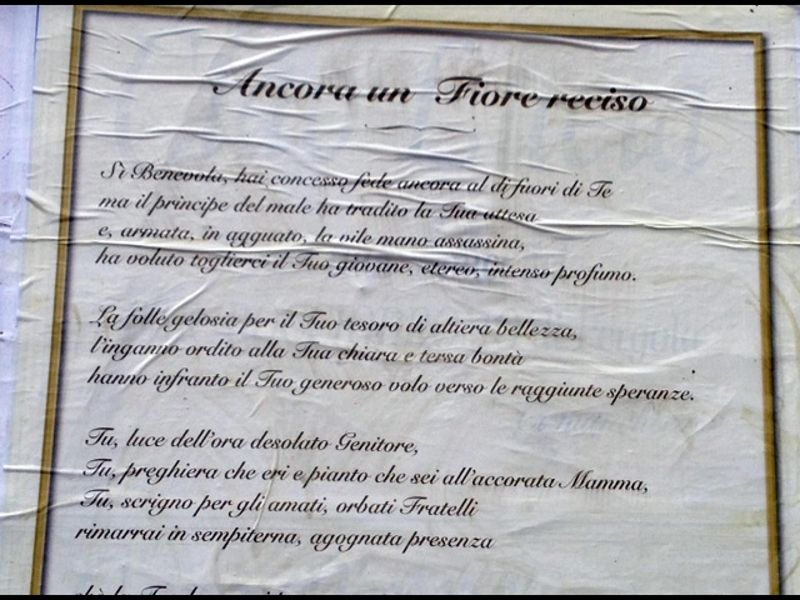 Ancora un Fiore reciso
Sì Benevola, hai concesso fede ancora al di fuori di Te
ma il principe del male ha tradito la Tua attesa
e, armata, in agguato, la vile mano assassina,
ha voluto toglierci il Tuo giovane, etereo, intenso profumo.
La folle gelosia per il Tuo tesoro di altiera bellezza,
l'inganno ordito alla Tua chiara e tersa bontà
hanno infranto il Tuo generoso volo verso le raggiunte speranze.
Tu, luce dell'ora desolato Genitore,
Tu, preghiera che eri e pianto che sei all'accorata Mamma,
Tu, scrigno per gli amati, orbati Fratelli
rimarrai in sempiterna, agognata presenza